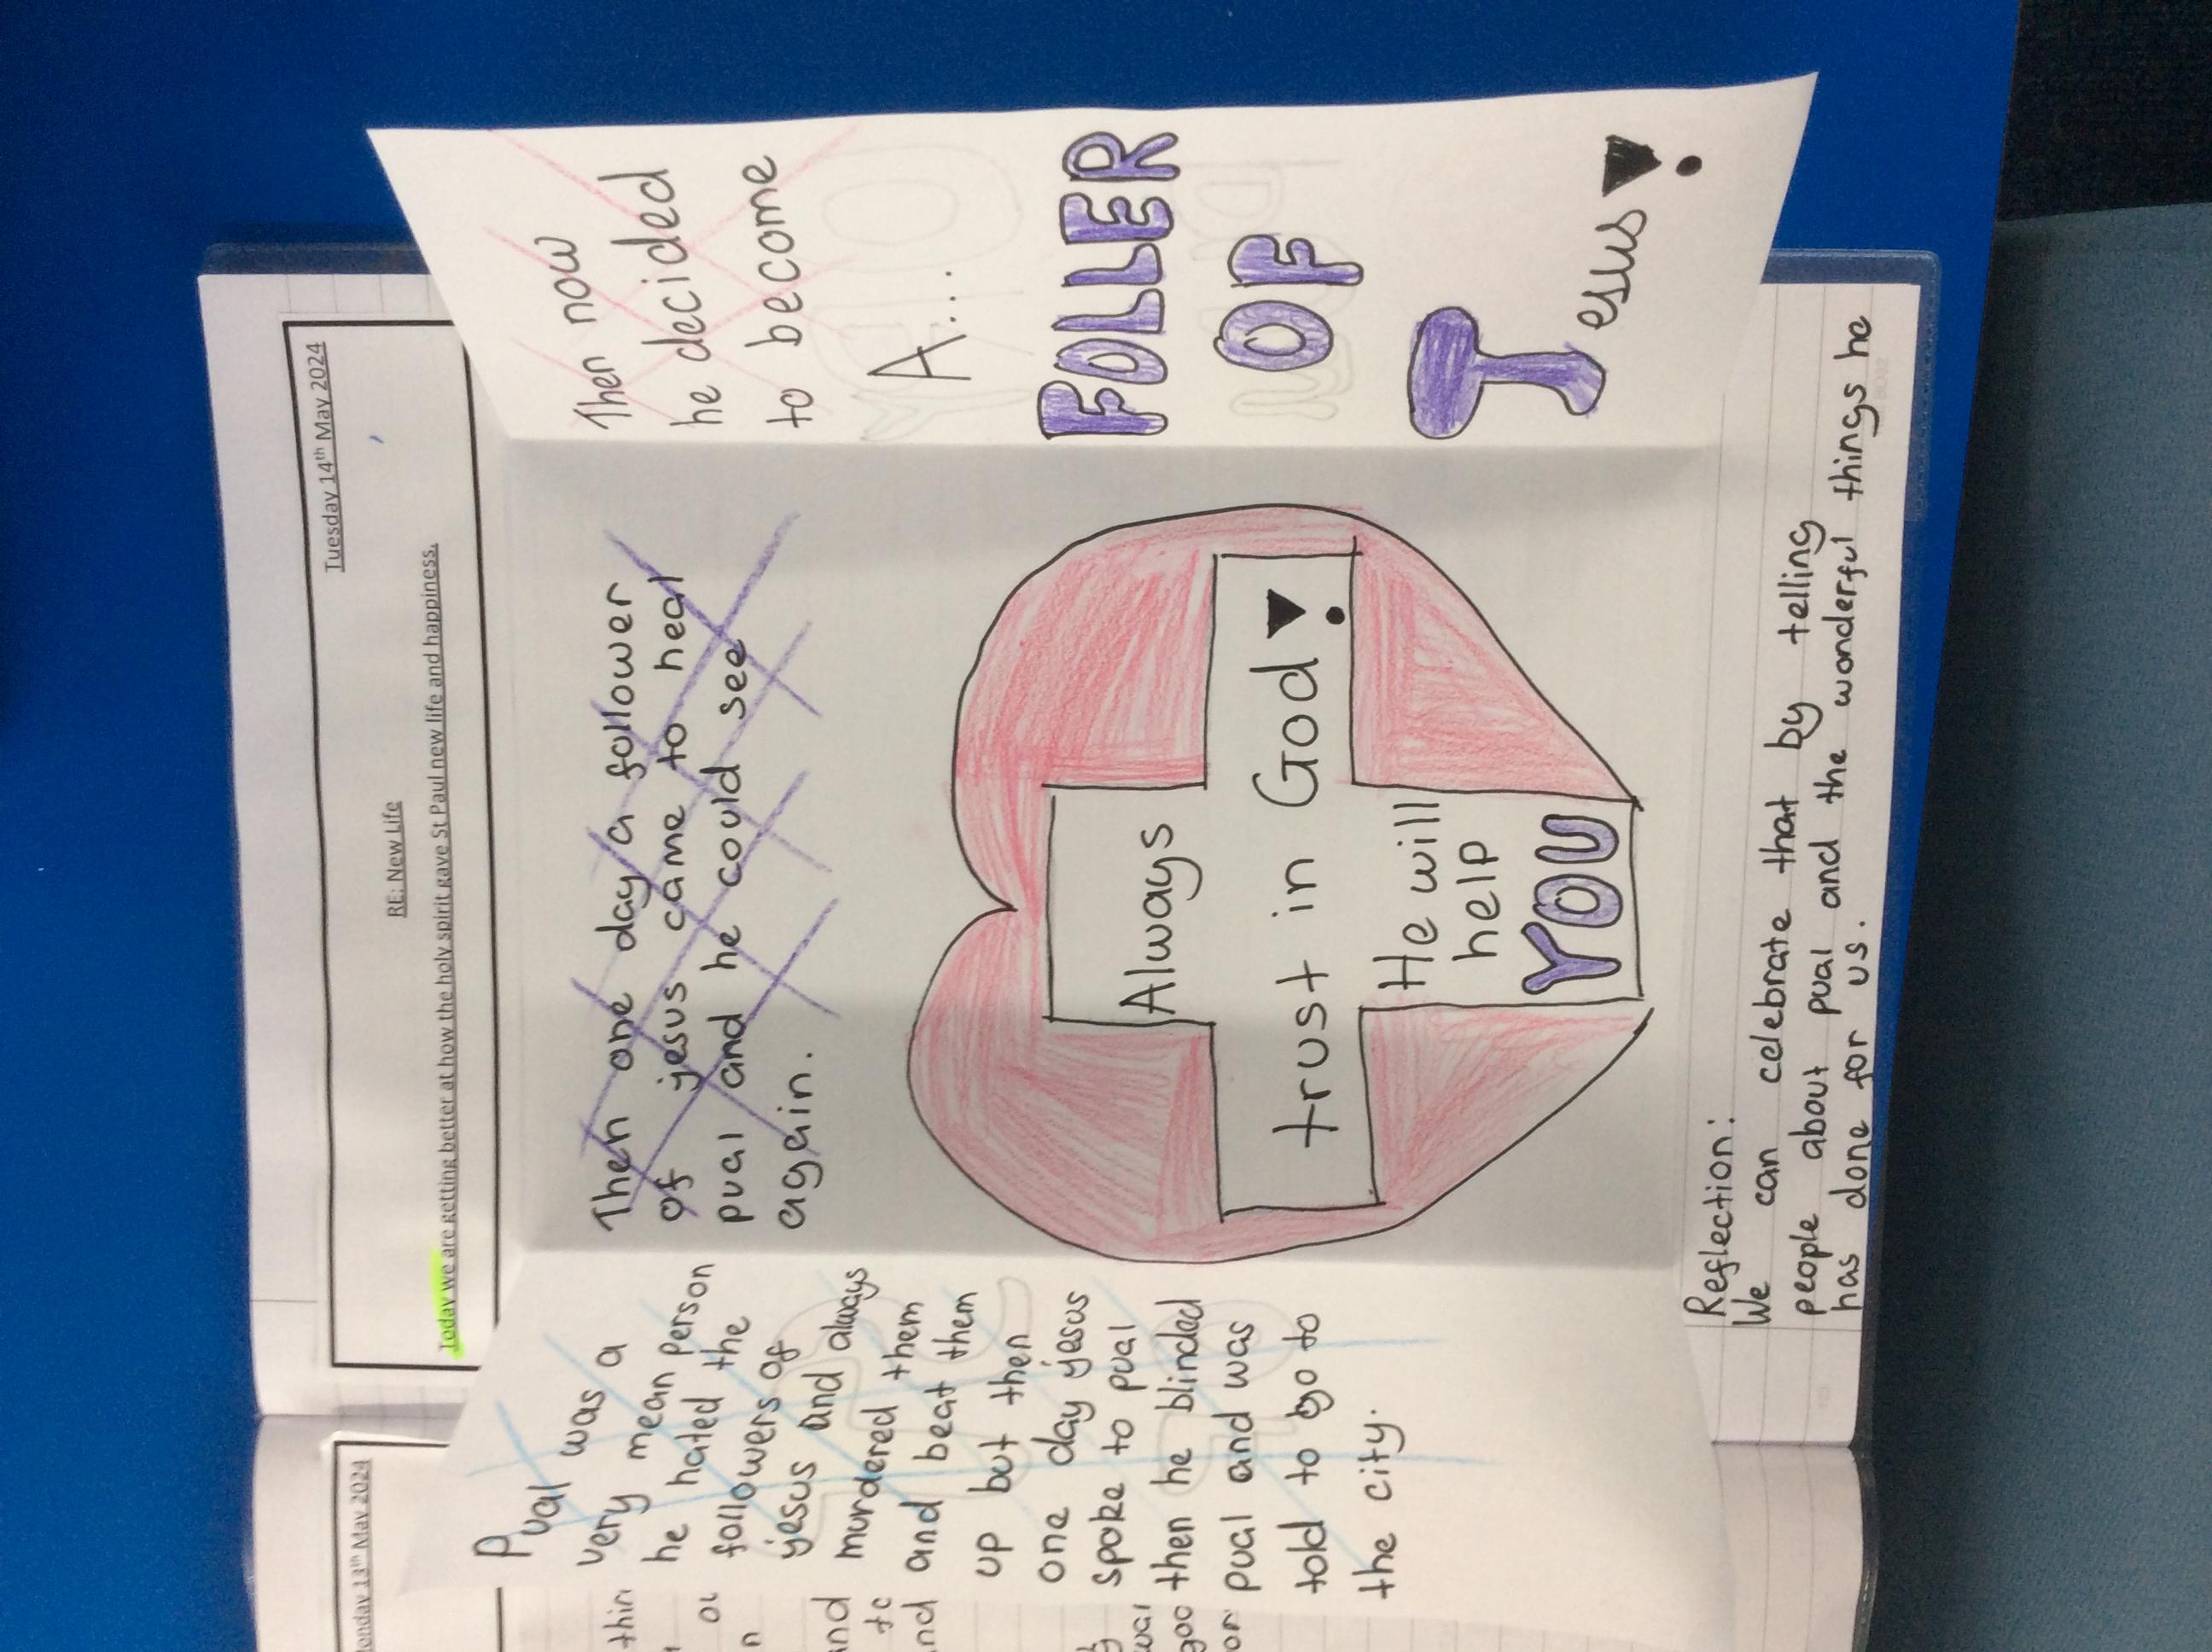 Tuesday 14th May 2024
RE: New Life
Today we are getting better at how the holy spirit gave St Paul new life and happiness.
Pual was a
very mean person
he hated the
followers of
yesus and always
murdered them
and beat them
up but then
one day yesus
spoke to pual
then he blinded
pual and was
told to go to
the city.
Then one day a follower
of yesus came to heal
pual and he could see
again.
Always
trust in God!
He will
help
YOU
Then now
he decided
to become
A...
FOLLER
OF
Jesus!
Reflection:
We can celebrate that by telling
people about pual and the wonderful things he
has done for us.
13th May 2024